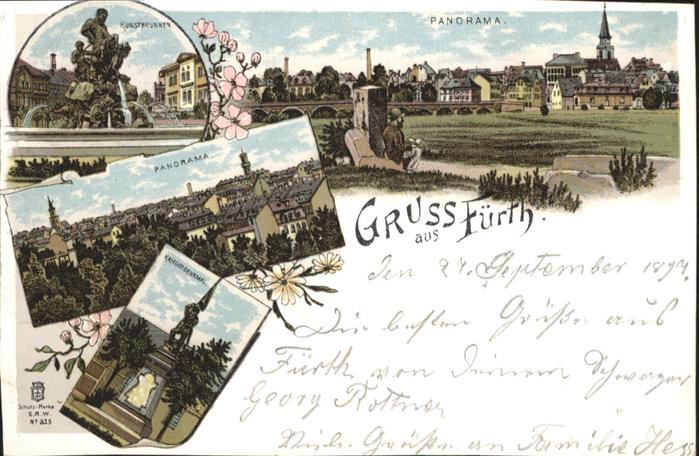 KUNSTBRUNNEN.
PANORAMA.
PANORAMA.
KRIEGERDENKMAL.
GRUSS aus Fürth.
Den 27. September 1897.
Die besten Grüße aus
Fürth von Deinem Schwager
Georg Rottner
Viele Grüße an Familie Hess
Schutz-Marke
E.R.W.
Nº 325